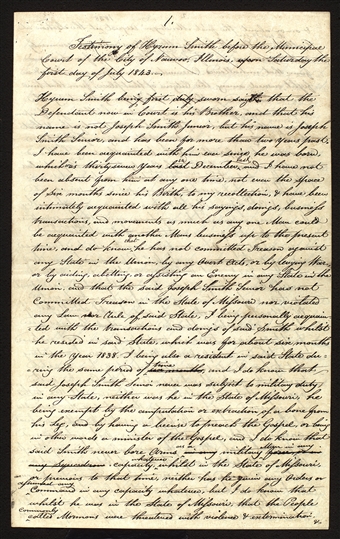 1.
Testimony of Hyrum Smith before the Municipal
Court of the City of Nauvoo, Illinois, upon Saturday the
first day of July 1843.
Hyrum Smith being first duly sworn saith that the
Defendant now in Court is his Brother, and that his
name is not Joseph Smith Junior, but his name is Joseph
Smith Senior, and has been for more than two years past,
I have been acquainted with him ever since he was born,
which was thirty seven years last December, and I have not
been absent from him at any one time, not even the space
of six months since his birth, to my recollection, & have been
intimately acquainted with all his sayings, doings, business
transactions, and movements as much as any one Man could
be acquainted with another Mans business up to the present
time, and do know that he has not committed Treason against
any State in the Union, by any overt Acts, or by levying War,
or by aiding, abetting or assisting an Enemy in any State in the
Union. and that the said Joseph Smith Senior has not
Committed Treason in the State of Missouri nor violated
any Law or Rule of said State, I being personally acquain-
ted with the transactions and doings of said Smith whilst
he resided in said State, which was for about six months
in the Year 1838. I being also a resident in said State du-
ring the same period of time, and I do know that
said Joseph Smith Senior never was subject to military duty
in any State, neither was he in the State of Missouri, he
being exempt by the amputation or extraction of a bone from
his leg, and by having a license to preach the Gospel, or being
in other words a minister of the Gospel, and I do know that
said Smith never bore Arms, as a military Man in any
capacity whatever whilst in the State of Missouri,
or previous to that time, neither has he given any Orders or
assumed any Command in any capacity whatever, but I do know that
whilst he was in the State of Missouri, that the People
commonly called Mormons were threatened with violence & extermination